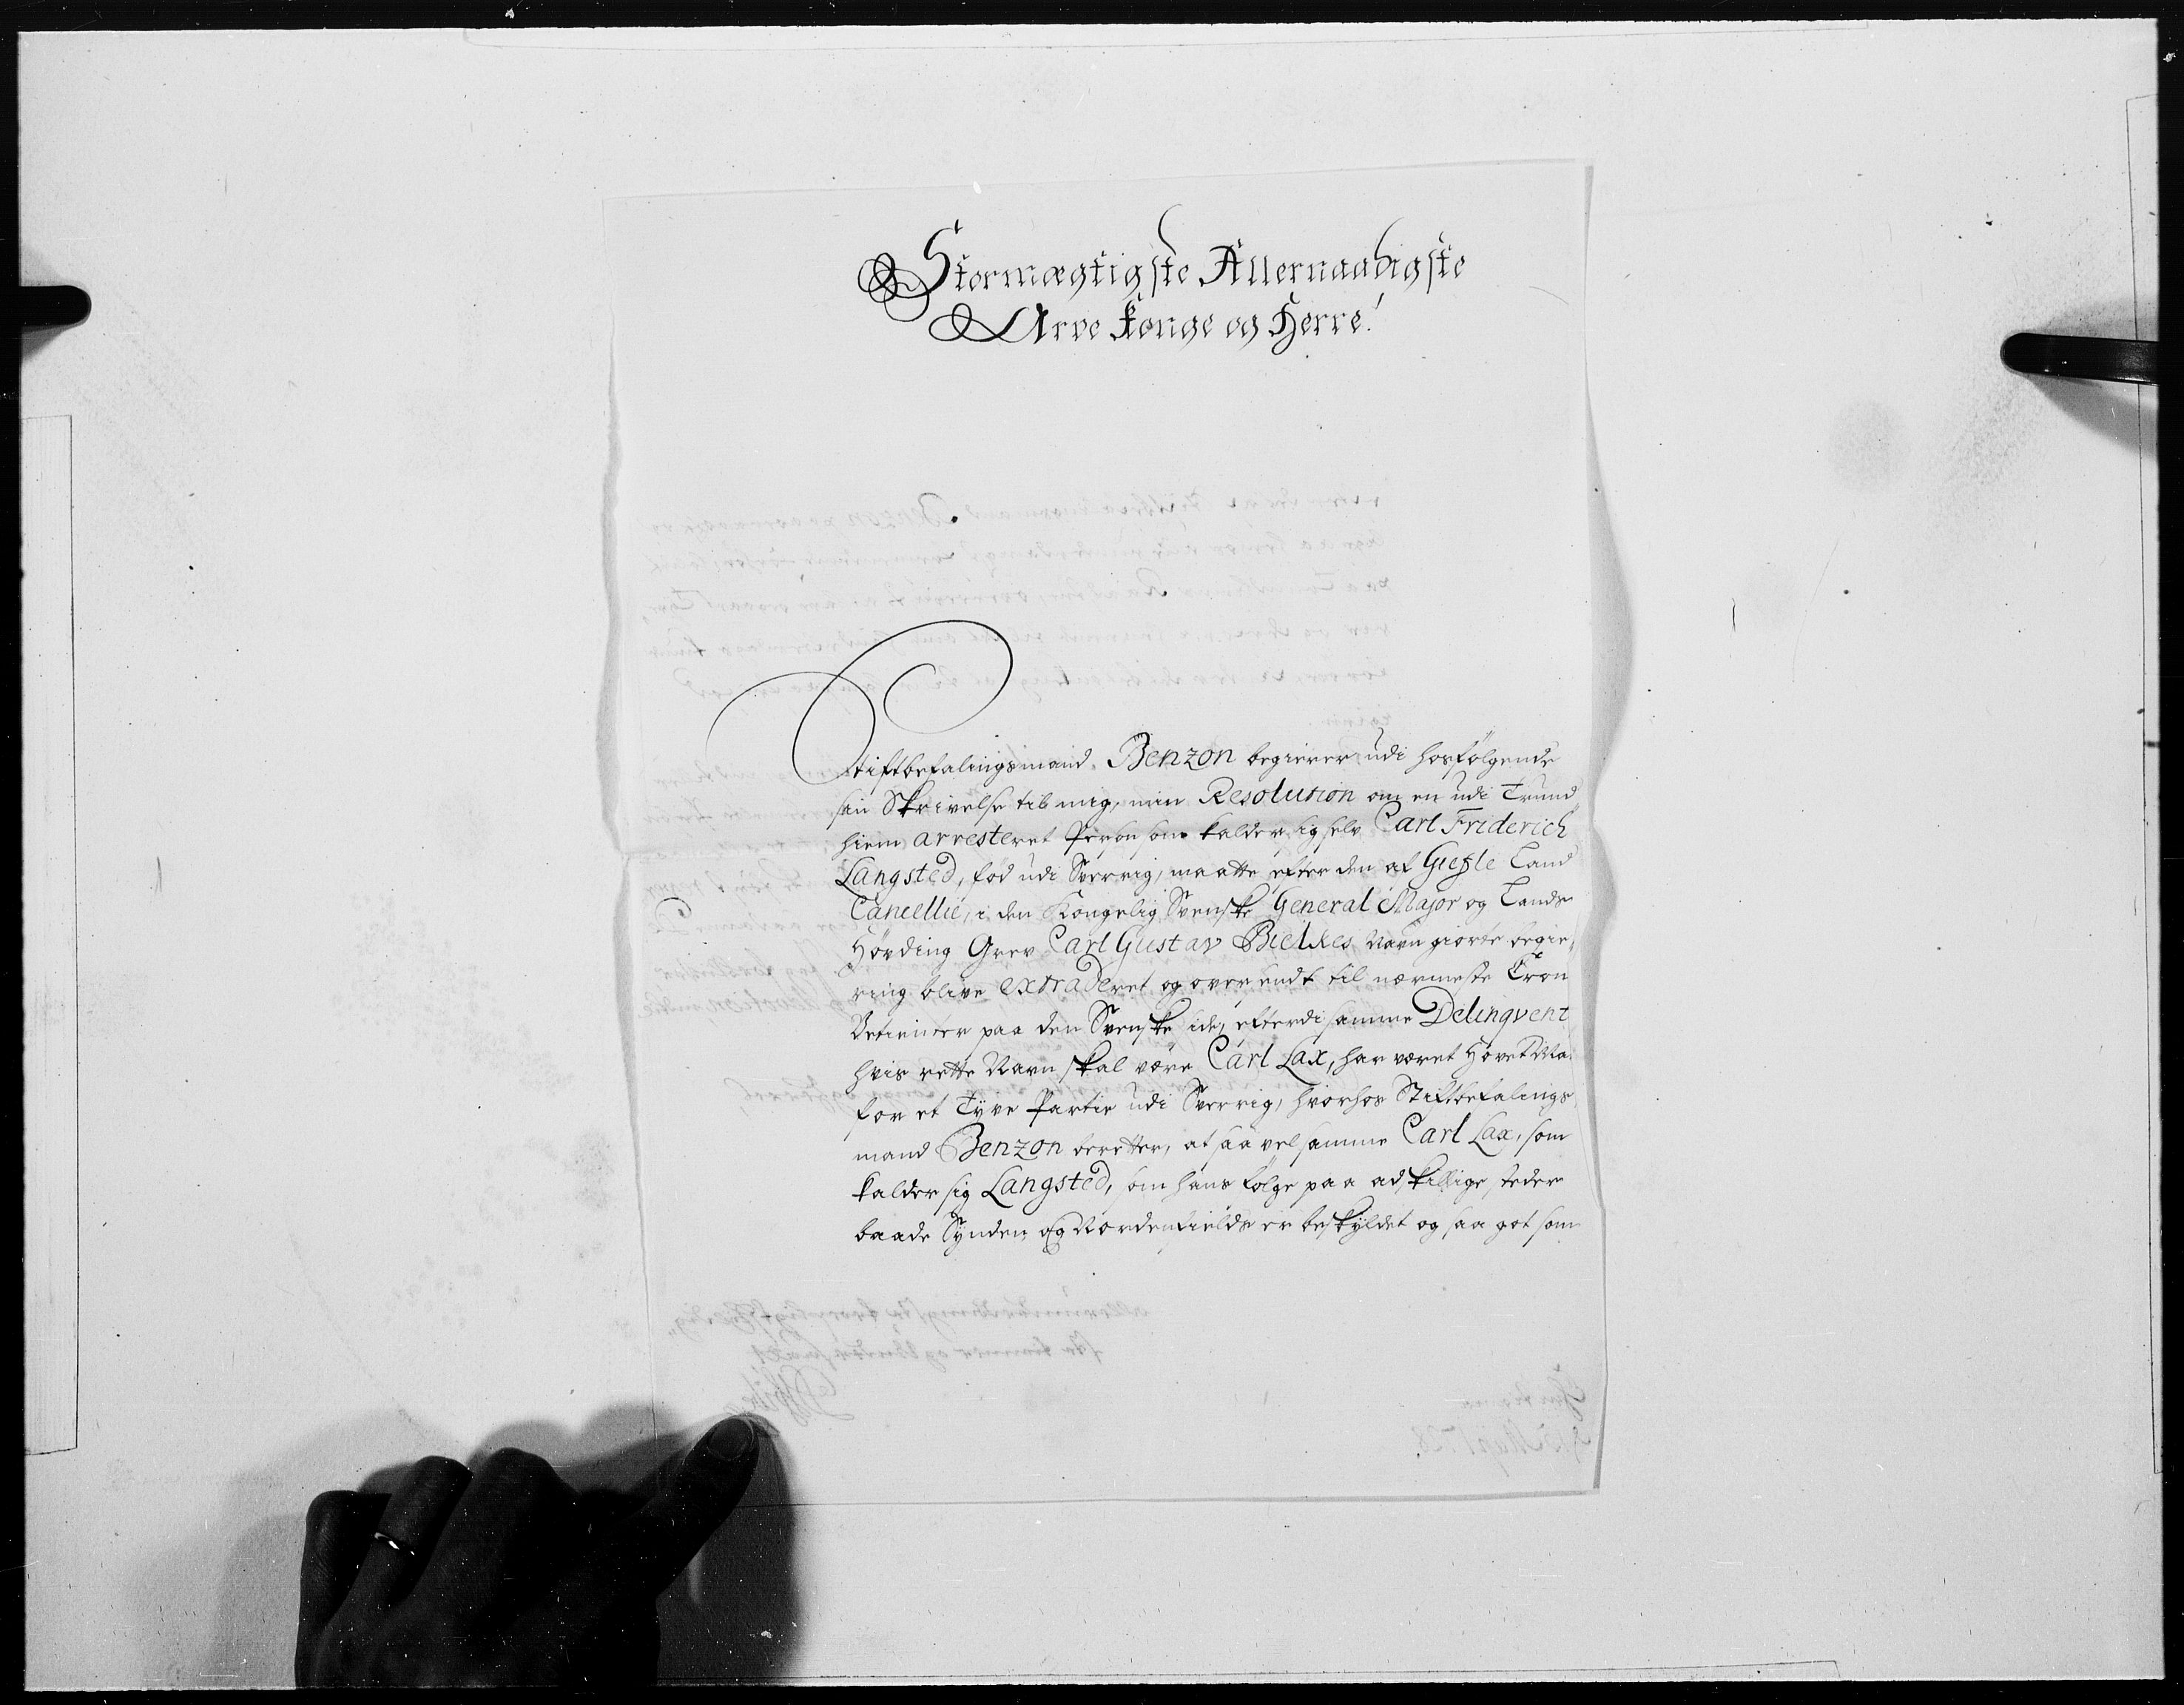 Stormægtigste Allernaadigste
Arve Konge og Herre!
Stiftbefalingsmand Benzon begierer udi hosfølgende
sin Skrivelse til mig, min Resolution om en udi Trund
hiem arresteret Person som kalder sig selv Carl Friderich
Langsted, fød udi Sverrig, maatte efter den af Giefle Land
Cancellie, i den Kongelig Svenske General Major og Lands
Høvding Grev Carl Gustav Bielkes Navn giorte begie,
ring blive extraderet og oversendt til nærmeste Cron
Betienter paa den Svenske side, efterdi samme Delinqvent
hvis rette Navn skal være Carl Lax, har været Hovet Ma
for et Tyve Partie udi Sverrig, hvorhos Stiftbefalings
mand Benzon beretter, at saa vel samme Carl Lax, som
kalder sig Langsted, som hans følge paa adskillige steder
baade Synden og Nordenfields er beskyldet og saa got som